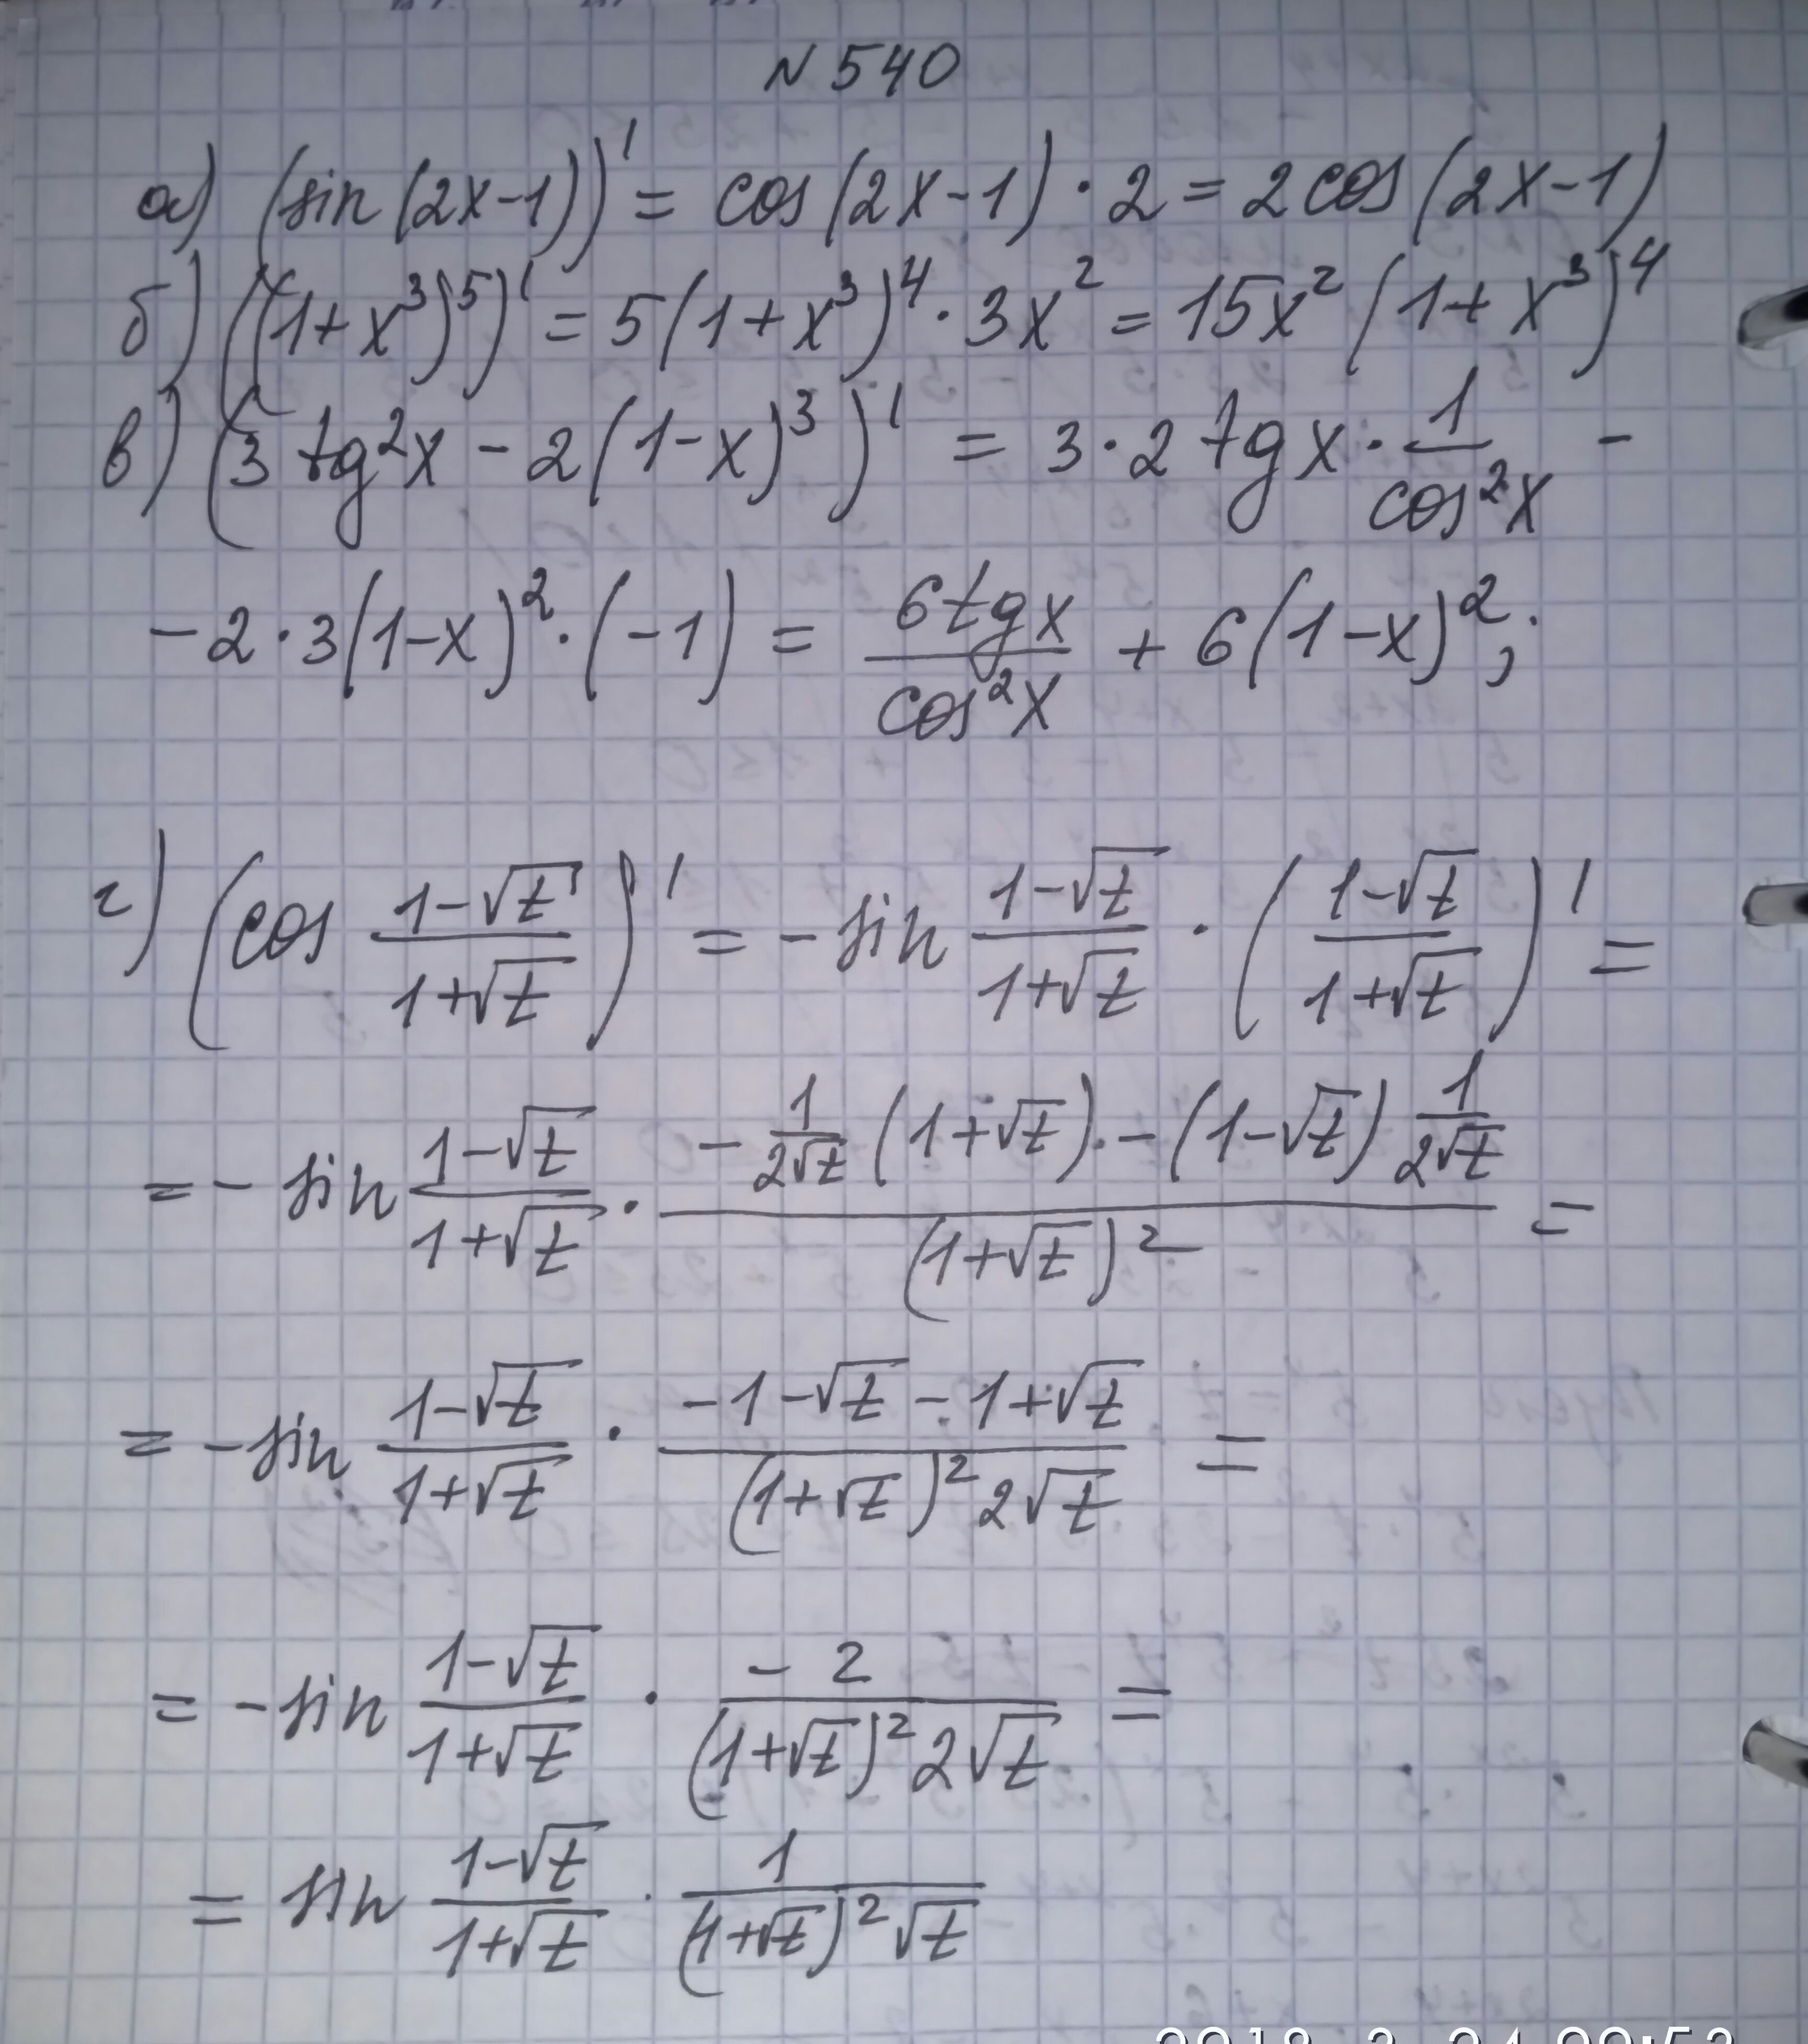 N 540
а) (sin(2x-1))' = cos(2x-1)·2 = 2cos(2x-1)
б) ((1+x³)⁵)' = 5(1+x³)⁴·3x² = 15x²(1+x³)⁴
в) (3 tg²x - 2(1-x)³)' = 3·2 tg x · 1/cos²x -
-2·3(1-x)²·(-1) = 6tg x/cos²x + 6(1-x)²;
г) (cos (1-√t)/(1+√t))' = -sin (1-√t)/(1+√t) · ((1-√t)/(1+√t))' =
= - sin (1-√t)/(1+√t) · (-1/(2√t) (1+√t) - (1-√t) 1/(2√t))/(1+√t)² =
= -sin (1-√t)/(1+√t) · (-1-√t-1+√t)/((1+√t)² 2√t) =
= -sin (1-√t)/(1+√t) · -2/((1+√t)² 2√t) =
= sin (1-√t)/(1+√t) · 1/((1+√t)² √t)